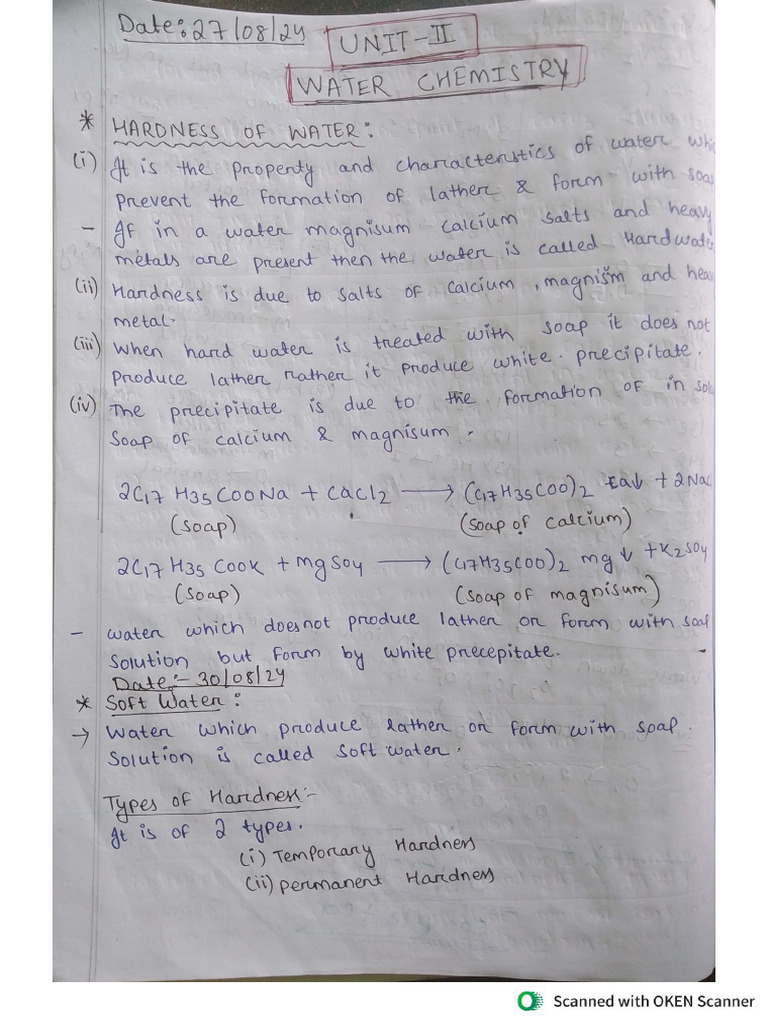 Date:27/08/24
UNIT-II
WATER CHEMISTRY
* HARDNESS OF WATER:
(i) It is the property and characteristics of water whic
prevent the formation of lather & form with soap
- If in a water magnisum calcium salts and heavy
metals are present then the water is called Hardwater
(ii) Hardness is due to salts of calcium, magnism and heav
metal.
(iii) When hard water is treated with soap it does not
produce lather rather it produce white precipitate.
(iv) The precipitate is due to the formation of in solu
soap of calcium & magnisum.
2C17 H35 COONa + CaCl2 ⟶ (C17H35COO)2 Ca↓ + 2NaC
(soap) (soap of calcium)
2C17 H35 COOK + mgSO4 ⟶ (C17H35COO)2 mg↓ + K2SO4
(soap) (soap of magnisum)
- water which doesnot produce lather or form with soap
solution but form by white precepitate.
Date:- 30/08/24
* SOFT WATER:
→ Water which produce lather or form with soap.
solution is called soft water.
Types of Hardness:-
It is of 2 types.
(i) Temporary Hardness
(ii) permanent Hardness
Scanned with OKEN Scanner